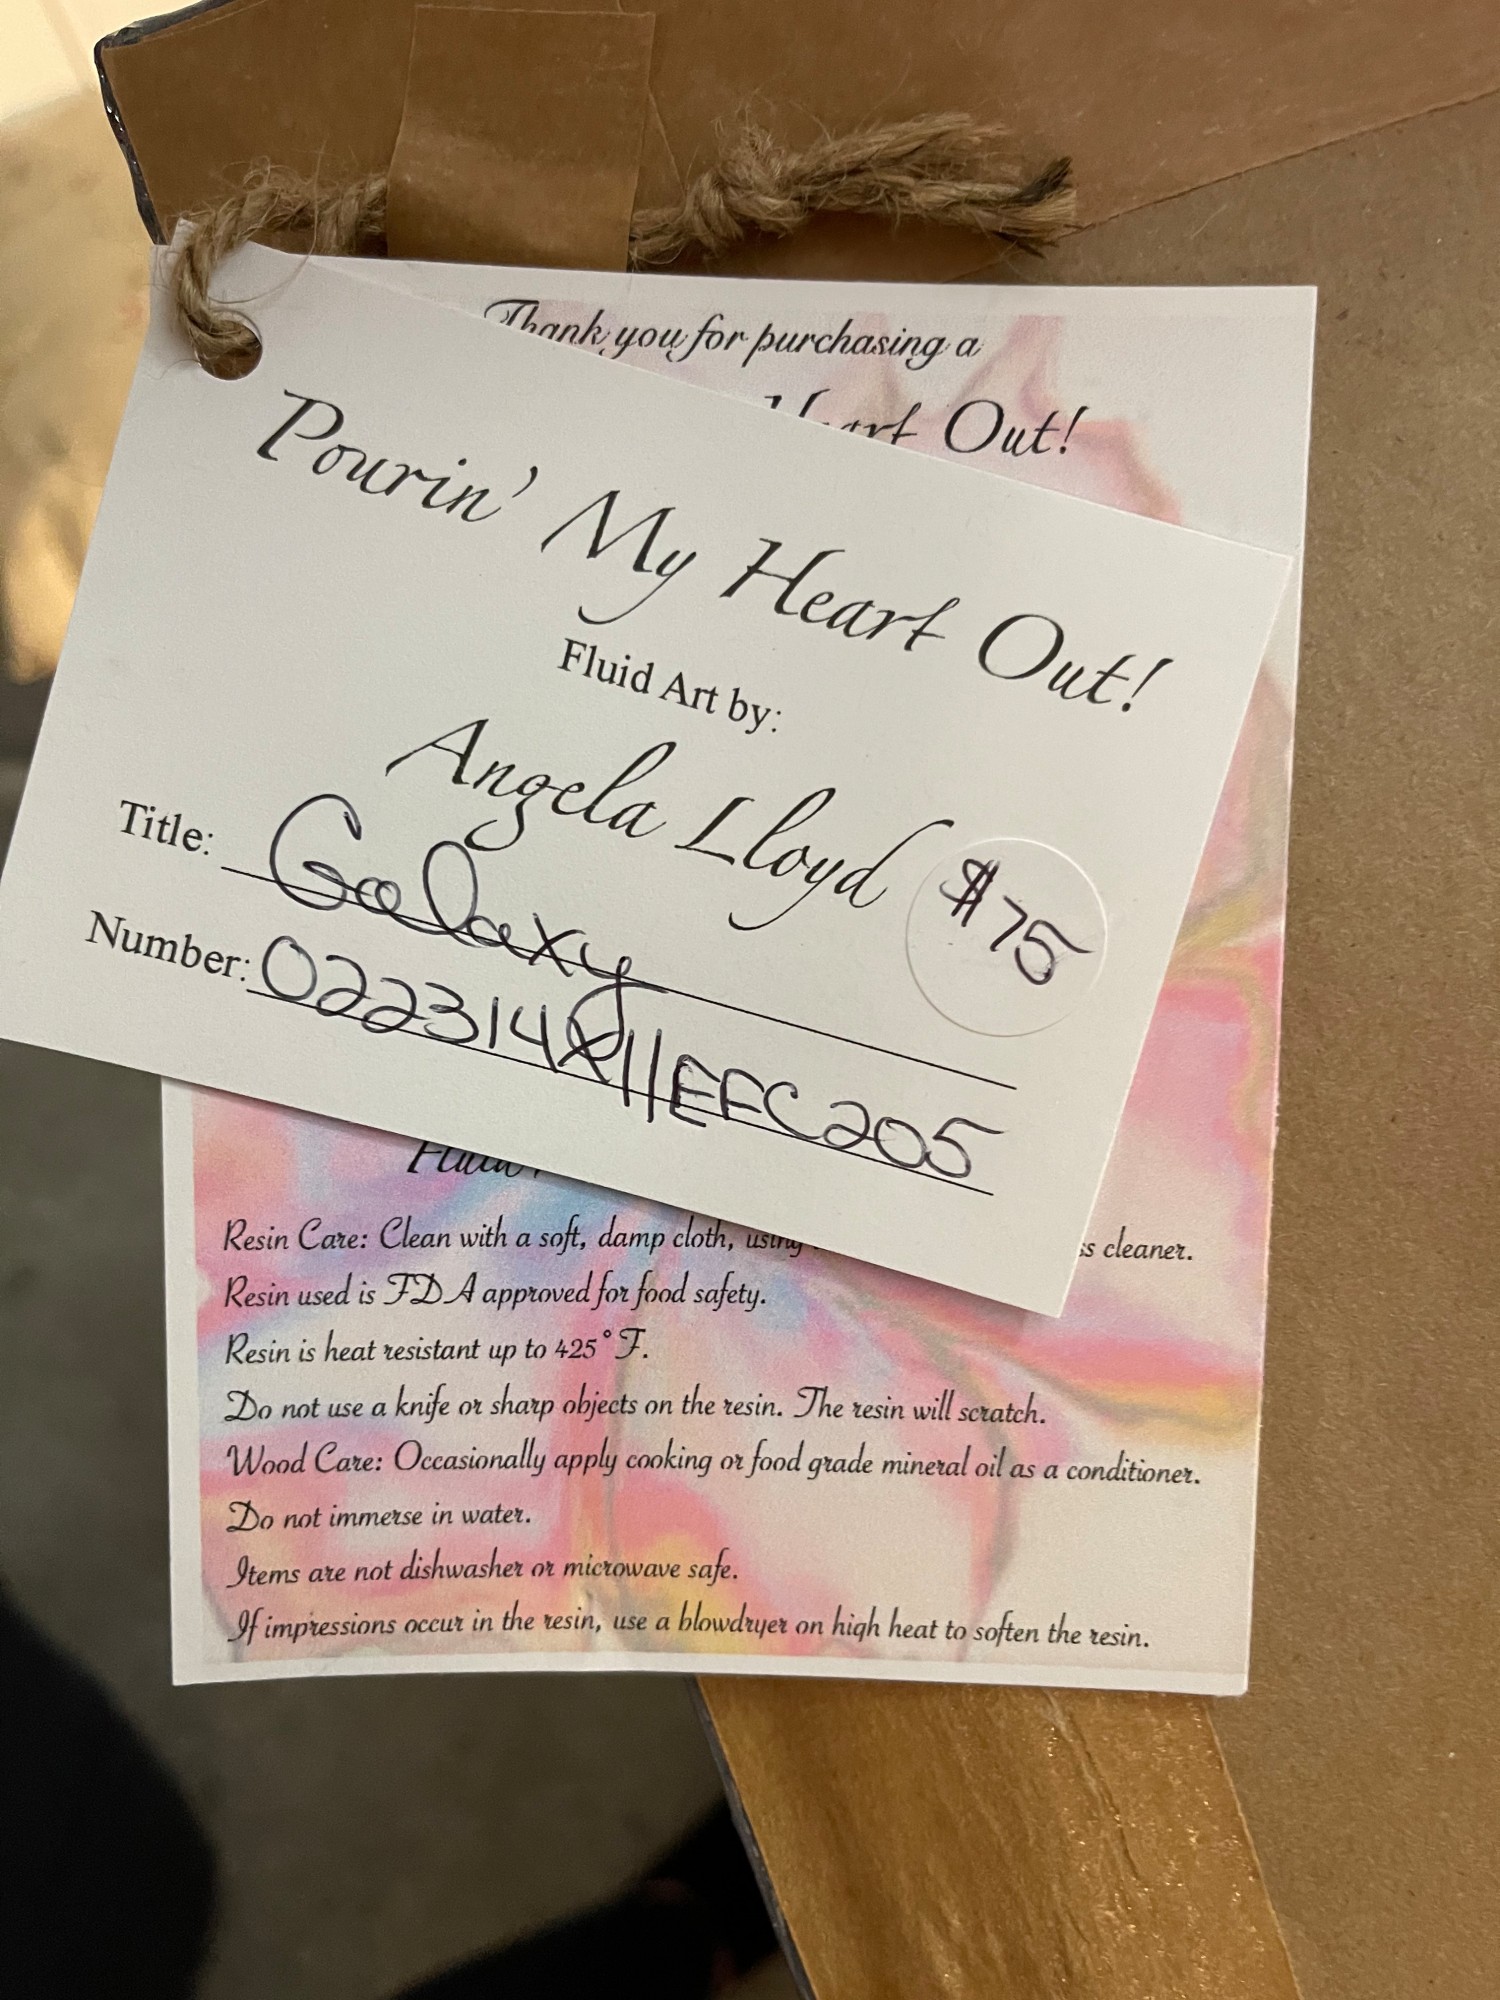 Thank you for purchasing a
Heart Out!
Pourin' My Heart Out!
Fluid Art by:
Angela Lloyd
$75
Title: Galaxy
Number: 022314X11EFC205
Resin Care: Clean with a soft, damp cloth, using
cleaner.
Resin used is FDA approved for food safety.
Resin is heat resistant up to 425°F.
Do not use a knife or sharp objects on the resin. The resin will scratch.
Wood Care: Occasionally apply cooking or food grade mineral oil as a conditioner.
Do not immerse in water.
Items are not dishwasher or microwave safe.
If impressions occur in the resin, use a blowdryer on high heat to soften the resin.